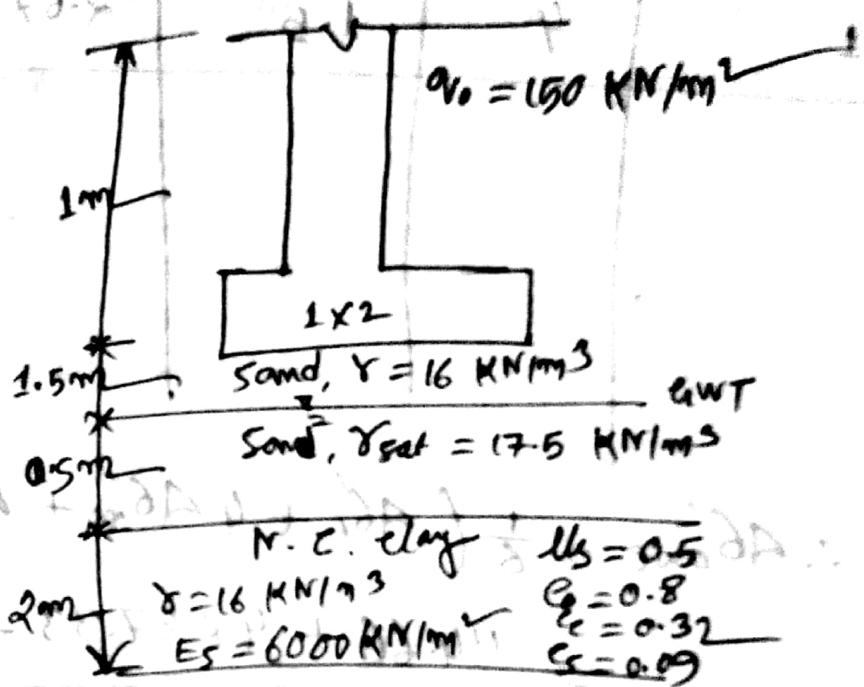 q₀ = 150 KN/m²
1m
1x2
1.5m
Sand, γ = 16 KN/m³
GWT
Sand, γsat = 17.5 KN/m³
0.5m
N. C. clay
μs = 0.5
2m
γ = 16 KN/m³
e₀ = 0.8
Es = 6000 KN/m²
cc = 0.32
cs = 0.09